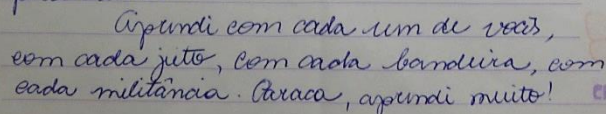 Aprendi com cada um de vocês,
com cada jeito, com cada bandeira, com
cada militância. Caraca, aprendi muito!